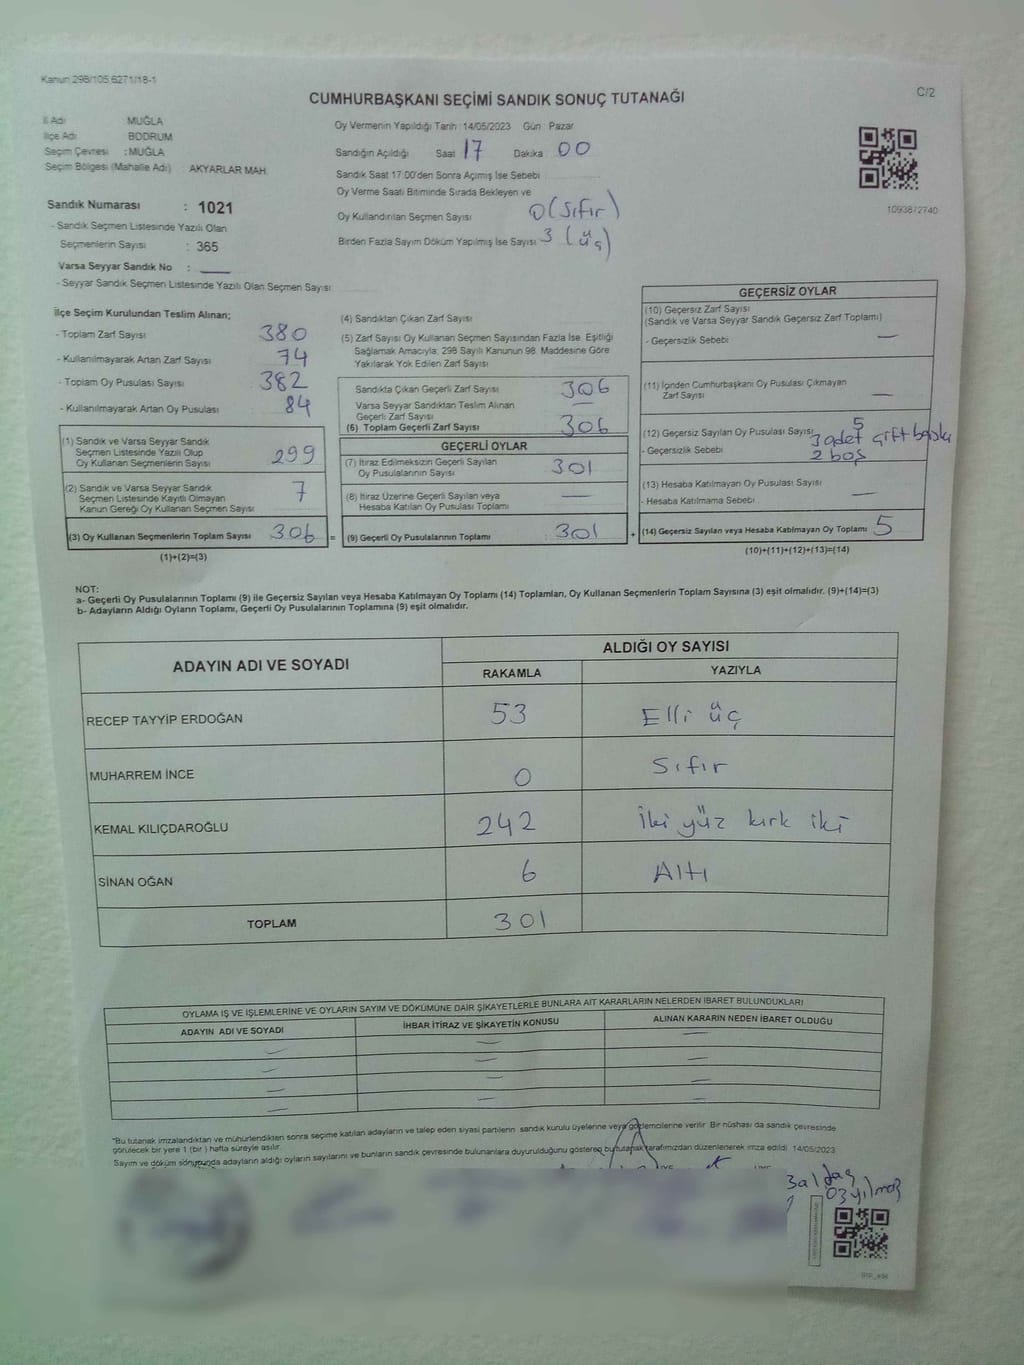 Kanun 298/105 6271/18-1
C/2
CUMHURBAŞKANI SEÇİMİ SANDIK SONUÇ TUTANAĞI
İl Adı MUĞLA
İlçe Adı BODRUM
Seçim Çevresi : MUĞLA
Seçim Bölgesi (Mahalle Adı) AKYARLAR MAH.
Oy Vermenin Yapıldığı Tarih :14/05/2023 Gün : Pazar
Sandığın Açıldığı Saat 17 Dakika 00
Sandık Saat 17:00'den Sonra Açımış İse Sebebi
Oy Verme Saati Bitiminde Sırada Bekleyen ve
Oy Kullandırılan Seçmen Sayısı 0 (Sıfır)
Birden Fazla Sayım Döküm Yapılmış İse Sayısı 3 (üç)
1093872740
Sandık Numarası : 1021
- Sandık Seçmen Listesinde Yazılı Olan
Seçmenlerin Sayısı : 365
Varsa Seyyar Sandık No :
- Seyyar Sandık Seçmen Listesinde Yazılı Olan Seçmen Sayısı
İlçe Seçim Kurulundan Teslim Alınan;
- Toplam Zarf Sayısı 380
- Kullanılmayarak Artan Zarf Sayısı 74
- Toplam Oy Pusulası Sayısı 382
- Kullanılmayarak Artan Oy Pusulası 84
(1) Sandık ve Varsa Seyyar Sandık
Seçmen Listesinde Yazılı Olup
Oy Kullanan Seçmenlerin Sayısı 299
(2) Sandık ve Varsa Seyyar Sandık
Seçmen Listesinde Kayıtlı Olmayan
Kanun Gereği Oy Kullanan Seçmen Sayısı 7
(3) Oy Kullanan Seçmenlerin Toplam Sayısı 306 =
(1)+(2)=(3)
(4) Sandıktan Çıkan Zarf Sayısı
(5) Zarf Sayısı Oy Kullanan Seçmen Sayısından Fazla İse Eşitliği
Sağlamak Amacıyla, 298 Sayılı Kanunun 98. Maddesine Göre
Yakılarak Yok Edilen Zarf Sayısı
Sandıkta Çıkan Geçerli Zarf Sayısı 306
Varsa Seyyar Sandıktan Teslim Alınan
Geçerli Zarf Sayısı —
(6) Toplam Geçerli Zarf Sayısı 306
GEÇERLİ OYLAR
(7) İtiraz Edilmeksizin Geçerli Sayılan
Oy Pusulalarının Sayısı 301
(8) İtiraz Üzerine Geçerli Sayılan veya
Hesaba Katılan Oy Pusulası Toplamı —
(9) Geçerli Oy Pusulalarının Toplamı : 301 +
GEÇERSİZ OYLAR
(10) Geçersiz Zarf Sayısı
(Sandık ve Varsa Seyyar Sandık Geçersiz Zarf Toplamı)
- Geçersizlik Sebebi —
(11) İçinden Cumhurbaşkanı Oy Pusulası Çıkmayan
Zarf Sayısı —
(12) Geçersiz Sayılan Oy Pusulası Sayısı 5
- Geçersizlik Sebebi 3 adet çift baskı
2 boş
(13) Hesaba Katılmayan Oy Pusulası Sayısı —
- Hesaba Katılmama Sebebi
(14) Geçersiz Sayılan veya Hesaba Katılmayan Oy Toplamı 5
(10)+(11)+(12)+(13)=(14)
NOT:
a- Geçerli Oy Pusulalarının Toplamı (9) ile Geçersiz Sayılan veya Hesaba Katılmayan Oy Toplamı (14) Toplamları, Oy Kullanan Seçmenlerin Toplam Sayısına (3) eşit olmalıdır. (9)+(14)=(3)
b- Adayların Aldığı Oyların Toplamı, Geçerli Oy Pusulalarının Toplamına (9) eşit olmalıdır.
ADAYIN ADI VE SOYADI ALDIĞI OY SAYISI
RAKAMLA YAZIYLA
RECEP TAYYİP ERDOĞAN 53 Elli üç
MUHARREM İNCE 0 Sıfır
KEMAL KILIÇDAROĞLU 242 İki yüz kırk iki
SİNAN OĞAN 6 Altı
TOPLAM 301
OYLAMA İŞ VE İŞLEMLERİNE VE OYLARIN SAYIM VE DÖKÜMÜNE DAİR ŞİKAYETLERLE BUNLARA AİT KARARLARIN NELERDEN İBARET BULUNDUKLARI
ADAYIN ADI VE SOYADI İHBAR İTİRAZ VE ŞİKAYETİN KONUSU ALINAN KARARIN NEDEN İBARET OLDUĞU
"Bu tutanak imzalandıktan ve mühürlendikten sonra seçime katılan adayların ve talep eden siyasi partilerin sandık kurulu üyelerine veya gözlemcilerine verilir. Bir nüshası da sandık çevresinde
görülecek bir yere 1 (bir) hafta süreyle asılır.
Sayım ve döküm sonucunda adayların aldığı oyların sayılarını ve bunların sandık çevresinde bulunanlara duyurulduğunu gösteren bu tutanak tarafımızdan düzenlenerek imza edildi. 14/05/2023